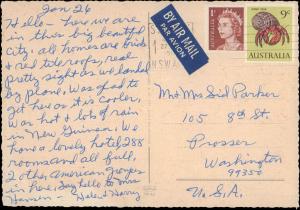 Jan 26
Hello - here we are
in this big beautiful
city. all homes are brick
& red tile roofs, real
pretty sight as we landed
by plane. Was glad to
get here as it is cooler,
was hot & lots of rain
in New Guinea. We
have a lovely hotel 288
rooms and all full,
2 oths. american groups
in here. Say hello to
Hansen. - Dale & Harry
BY AIR MAIL
PAR AVION
1c
AUSTRALIA
9c
AUSTRALIA
Mr & Mrs Sid Parker
105 8th St.
Prosser
Washington
99350
U.S.A.